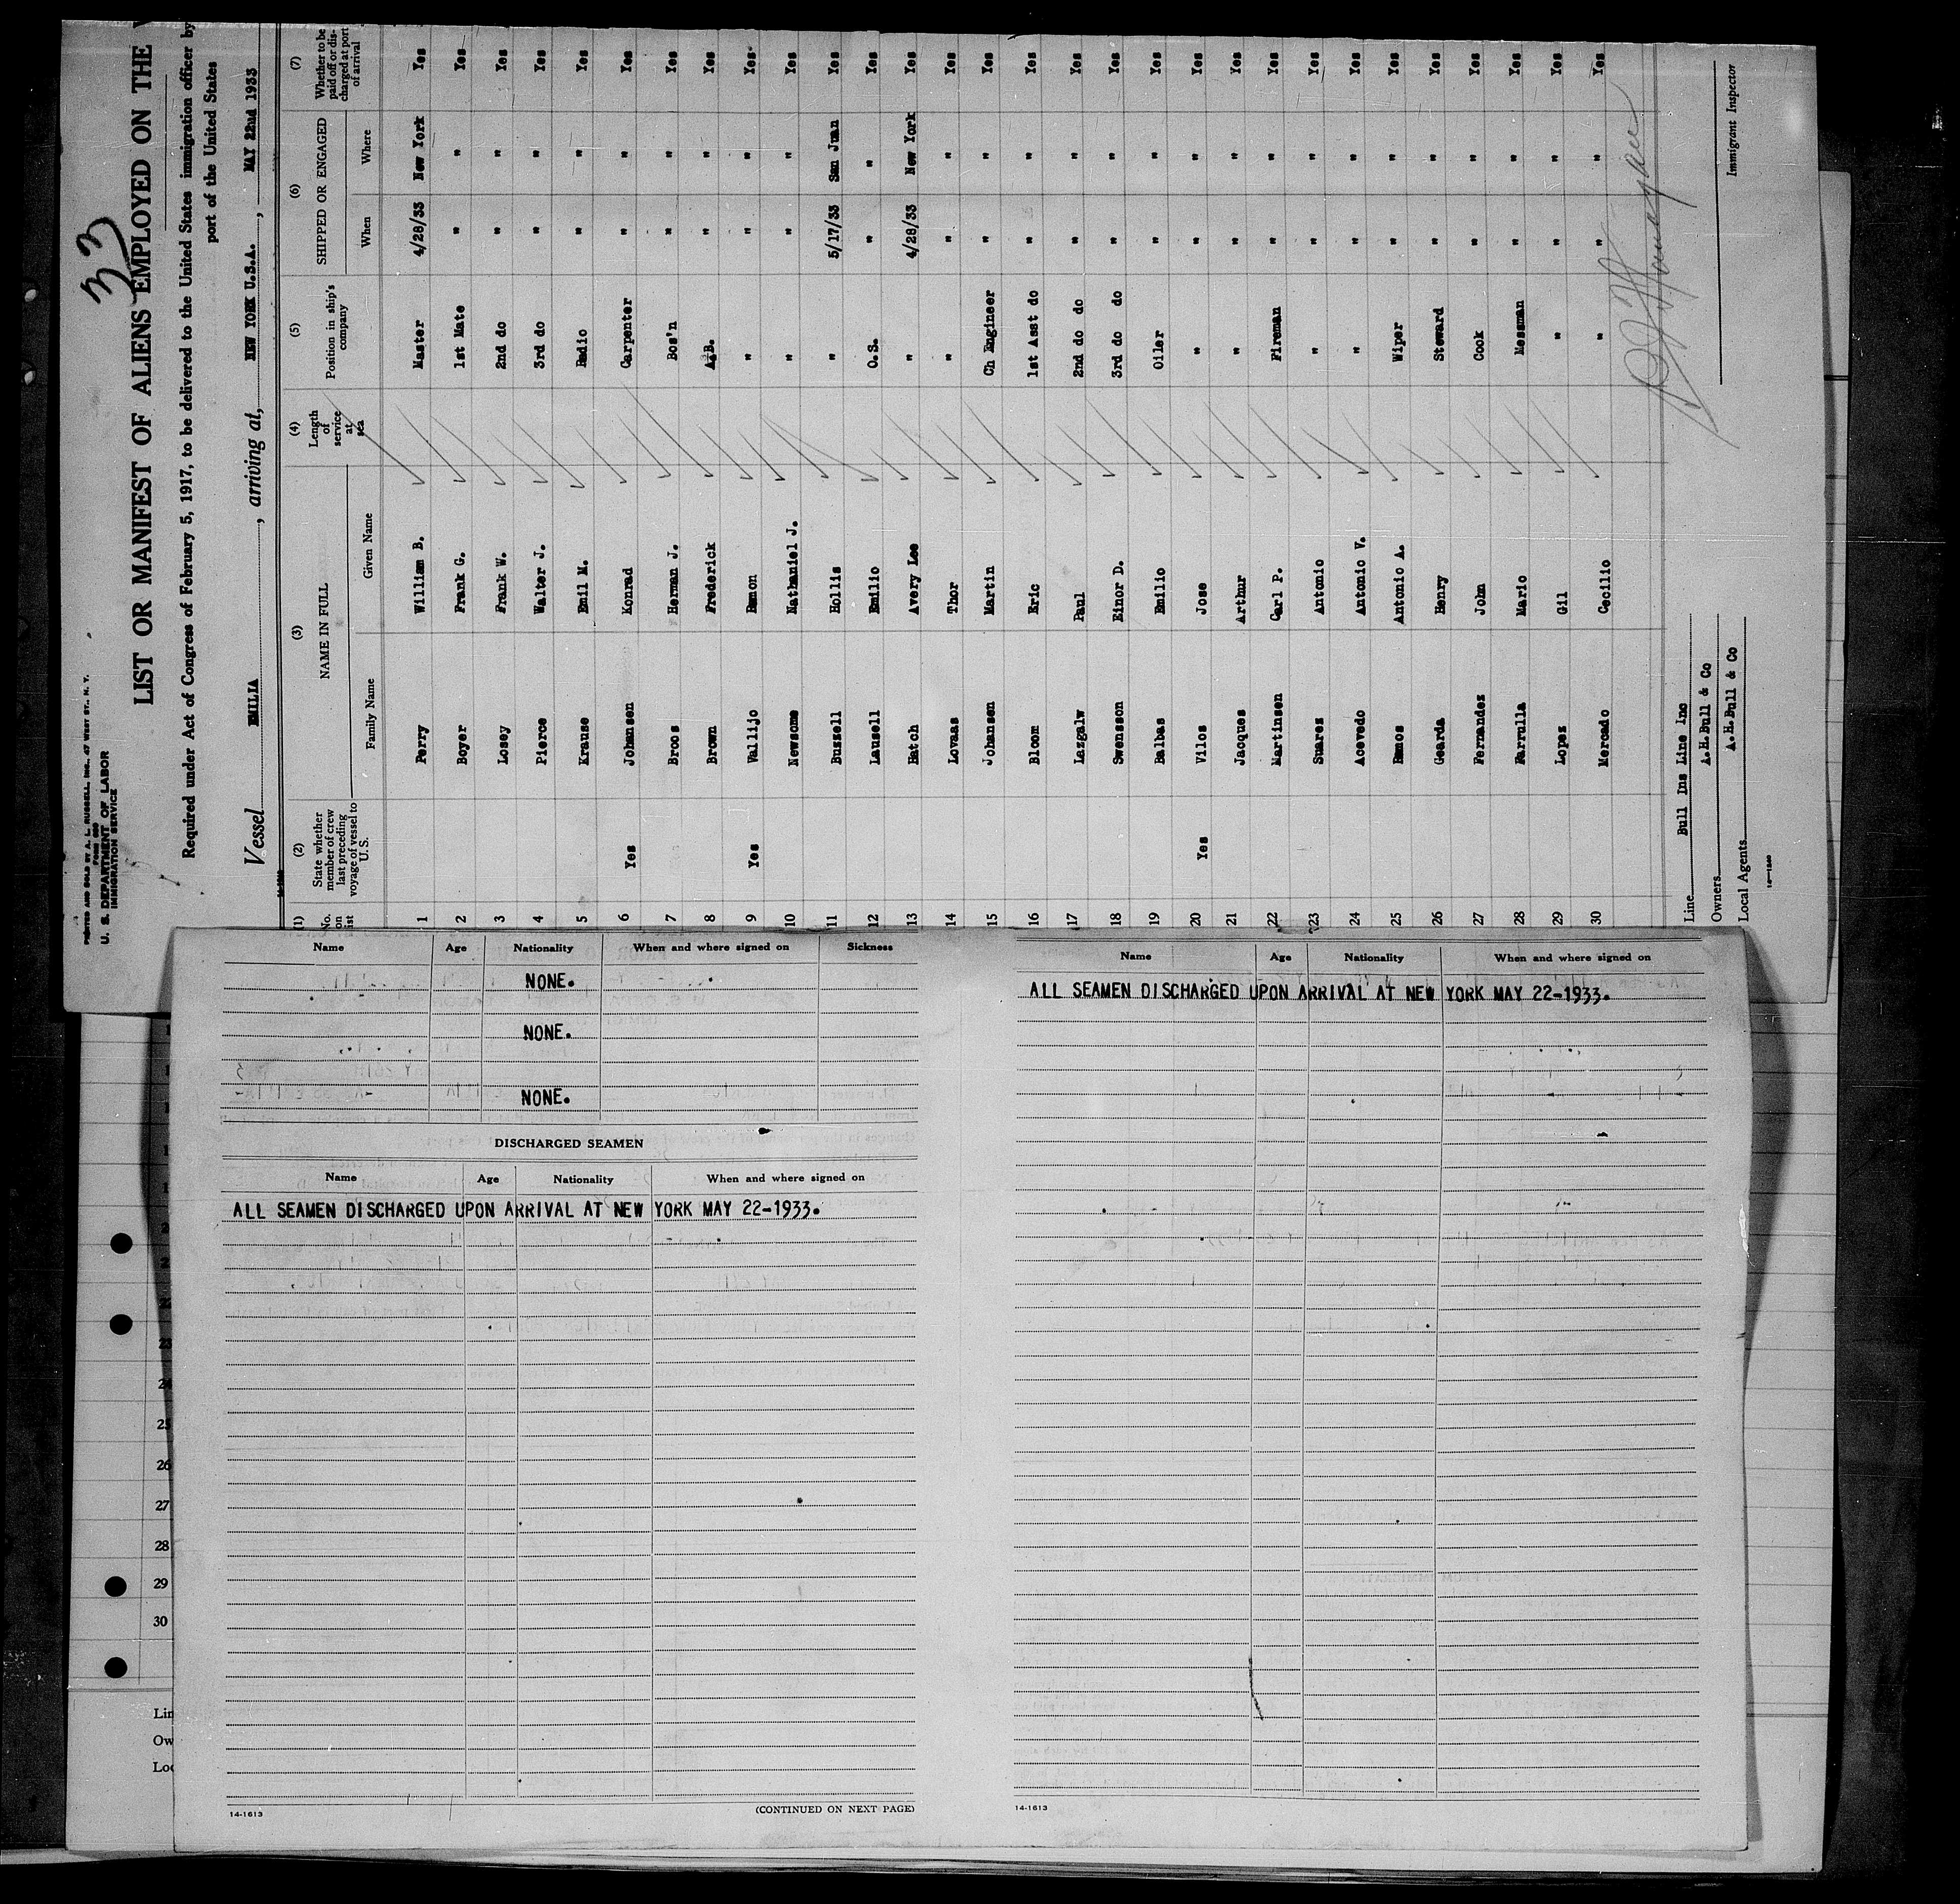 33
PRINTED AND SOLD BY A. L. RUSSELL, INC., 47 WEST ST., N. Y.
Form 689
U. S. DEPARTMENT OF LABOR
IMMIGRATION SERVICE
LIST OR MANIFEST OF ALIENS EMPLOYED ON THE
Required under Act of Congress of February 5, 1917, to be delivered to the United States immigration officer by
port of the United States
Vessel EMILIA, arriving at, NEW YORK U.S.A., MAY 22nd 1933
(1) No. on list (2) State whether member of crew last preceding voyage of vessel to U. S. (3) NAME IN FULL Family Name Given Name (4) Length of service at sea (5) Position in ship's company (6) SHIPPED OR ENGAGED When Where (7) Whether to be paid off or discharged at port of arrival
1 Perry William B. Master 4/28/33 New York Yes
2 Boyer Frank G. 1st Mate " " Yes
3 Losey Frank W. 2nd do " " Yes
4 Pierce Walter J. 3rd do " " Yes
5 Krause Emil M. Radio " " Yes
6 Yes Johansen Konrad Carpenter " " Yes
7 Broos Herman J. Bos'n " " Yes
8 Brown Frederick A.B. " " Yes
9 Yes Vallijo Ramon " " " Yes
10 Newsome Nathaniel J. " " " Yes
11 Buzzell Hollis " 5/17/33 San Juan Yes
12 Lausell Emilio O.S. " " Yes
13 Hatch Avery Lee " 4/28/33 New York Yes
14 Lovaas Thor " " " Yes
15 Johansen Martin Ch Engineer " " Yes
16 Bloom Eric 1st Asst do " " Yes
17 Lazgalw Paul 2nd do do " " Yes
18 Swensson Einor D. 3rd do do " " Yes
19 Balbas Emilio Oiler " " Yes
20 Yes Vilos Jose " " " Yes
21 Jacques Arthur " " " Yes
22 Martinsen Carl P. Fireman " " Yes
23 Suarez Antonio " " " Yes
24 Acevedo Antonio V. " " " Yes
25 Ramos Antonio A. Wiper " " Yes
26 Gearda Henry Steward " " Yes
27 Fernandez John Cook " " Yes
28 Farrulla Mario Messman " " Yes
29 Lopez Gil " " " Yes
30 Mercado Cecilio " " " Yes
Line Bull Ins Line Inc
Owners A.H.Bull & Co
Local Agents A.H.Bull & Co
Immigrant Inspector
Name Age Nationality When and where signed on Sickness
NONE.
NONE.
NONE.
DISCHARGED SEAMEN
Name Age Nationality When and where signed on
ALL SEAMEN DISCHARGED UPON ARRIVAL AT NEW YORK MAY 22-1933.
14-1613
(CONTINUED ON NEXT PAGE)
Name Age Nationality When and where signed on
ALL SEAMEN DISCHARGED UPON ARRIVAL AT NEW YORK MAY 22-1933.
14-1613
23
24
25
26
27
28
29
30
Lin
Ow
Loc